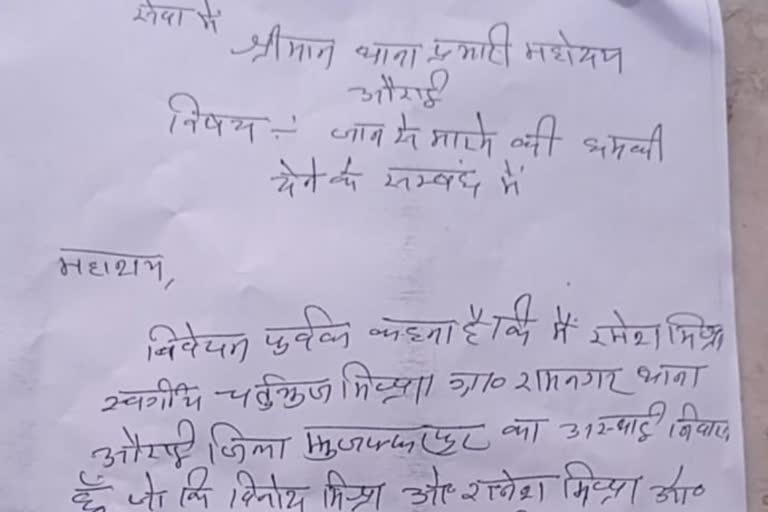 सेवा में
श्रीमान थाना प्रभारी महोदय
औराई
विषय :- जान से मारने की धमकी
देने के सम्बंध में
महाशय,
निवेदन पुर्वक कहना है कि मैं रमेश मिश्रा
स्वर्गीय चर्तुभुज मिश्रा ग्रा० रामनगर थाना
औराई जिला मुजफ्फरपुर का अस्थाई निवासी
हूँ जो कि विनोद मिश्रा और राजेश मिश्रा